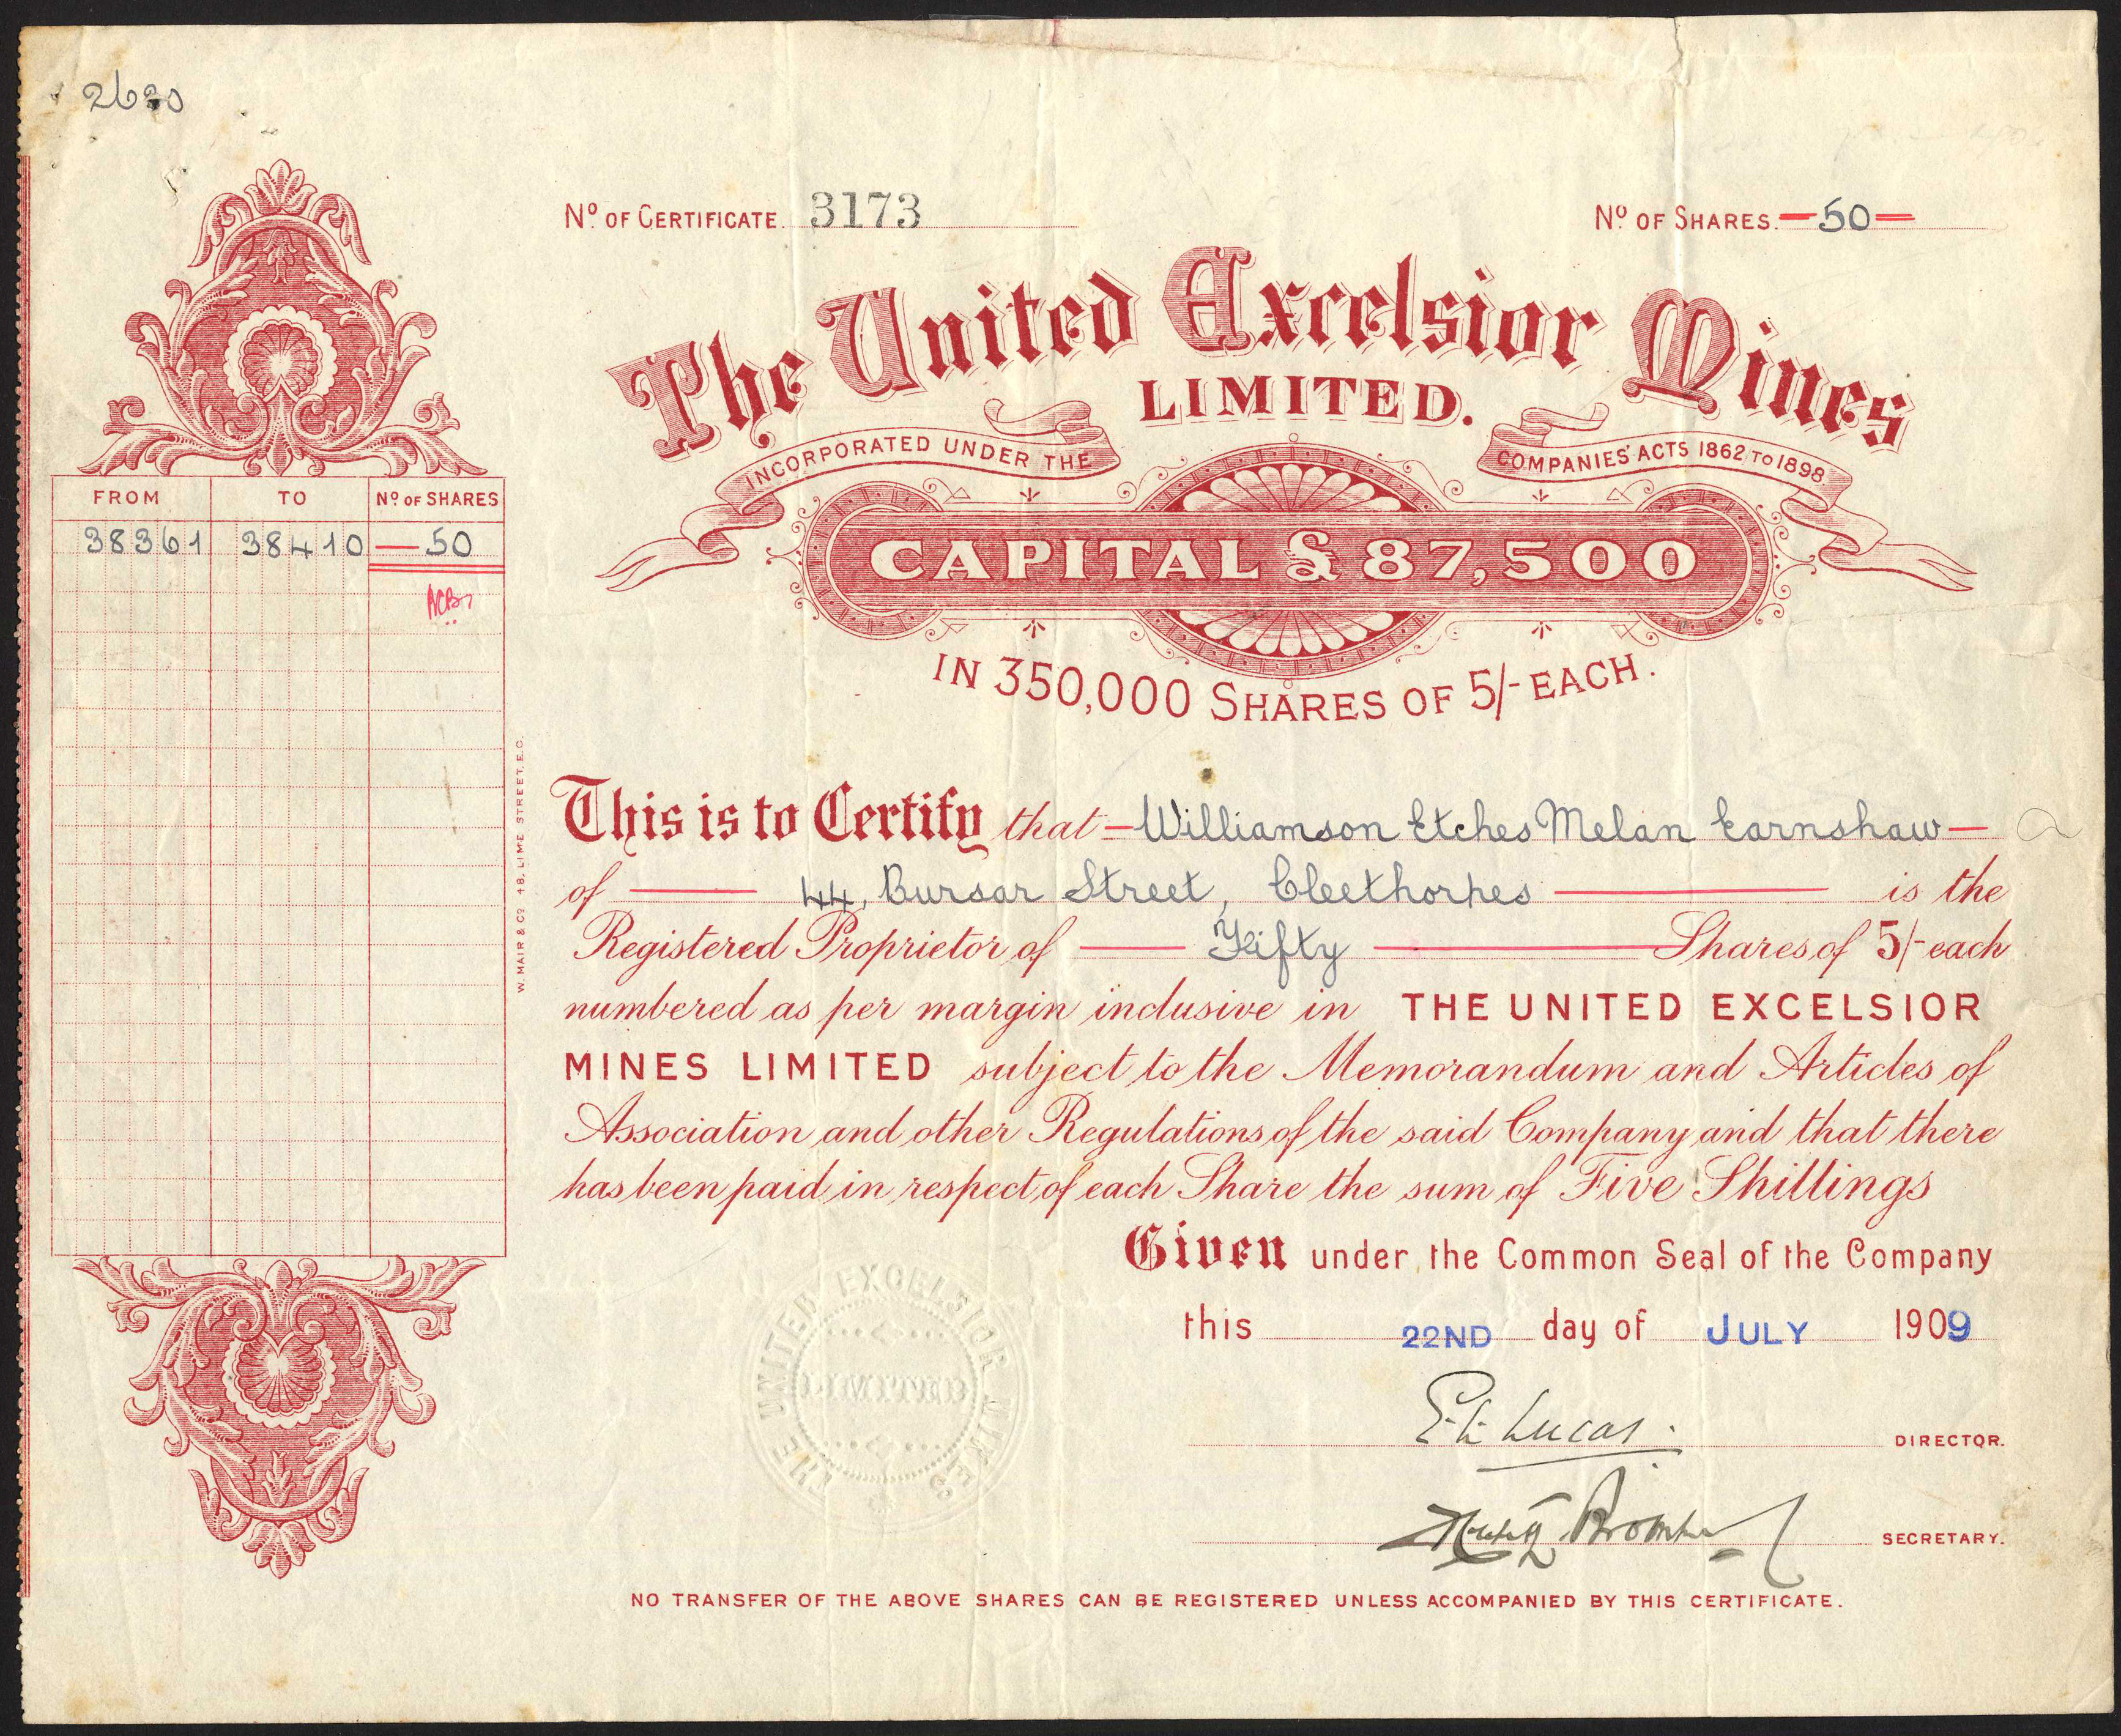 2630
Nº OF CERTIFICATE. 3173
Nº OF SHARES. 50
The United Excelsior Mines
LIMITED.
INCORPORATED UNDER THE COMPANIES' ACTS 1862 TO 1898.
CAPITAL £87,500
IN 350,000 SHARES OF 5/- EACH.
FROM TO Nº OF SHARES
38361 38410 50
W. MAIR & Cº 48, LIME STREET, E.C.
This is to Certify that Williamson Etches Melan Earnshaw
of 44, Bursar Street, Cleethorpes is the
Registered Proprietor of Fifty Shares of 5/- each
numbered as per margin inclusive in THE UNITED EXCELSIOR
MINES LIMITED subject to the Memorandum and Articles of
Association and other Regulations of the said Company and that there
has been paid in respect of each Share the sum of Five Shillings
Given under the Common Seal of the Company
this 22ND day of JULY 1909
THE UNITED EXCELSIOR MINES
LIMITED
Lucas. DIRECTOR.
SECRETARY.
NO TRANSFER OF THE ABOVE SHARES CAN BE REGISTERED UNLESS ACCOMPANIED BY THIS CERTIFICATE.